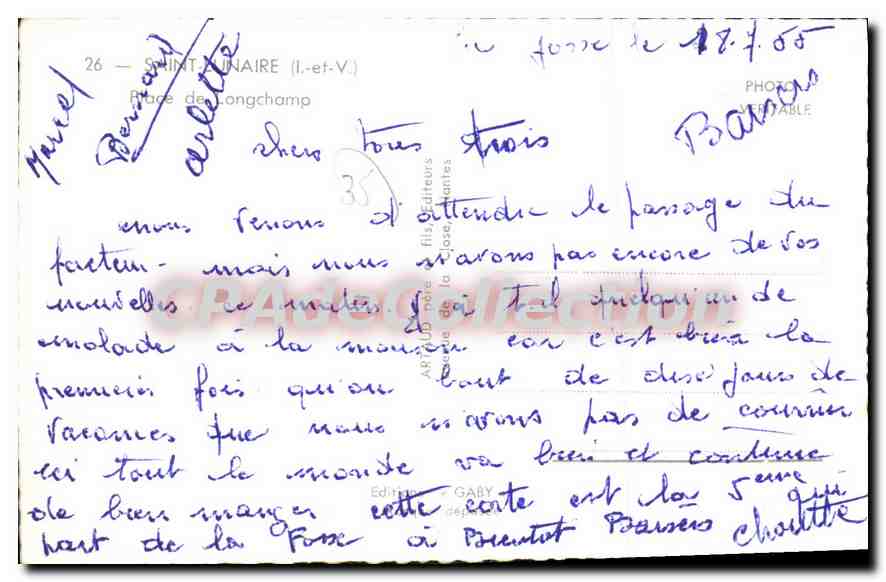 la fosse le 18.7.55
26 — SAINT-LUNAIRE (I.-et-V.)
Place de Longchamp
PHOTO
VERITABLE
Marcel
Bernard
arlette
Baisers
chers tous trois
35
nous venons d'attendre le passage du
facteur - mais nous n'avons pas encore de vos
nouvelles ce matin. y a t il quelqu'un de
malade à la maison car c'est bien la
premiers fois qu'au bout de dix jours de
vacances que nous n'avons pas de courrier
ici tout le monde va bien et continue
de bien manger cette carte est la 5eme qui
part de la Fosse à Bientot Baisers
chouttte
ARTAUD père et fils, Editeurs
de la Close, Nantes
Editions GABY
déposée
CPAdeCollection